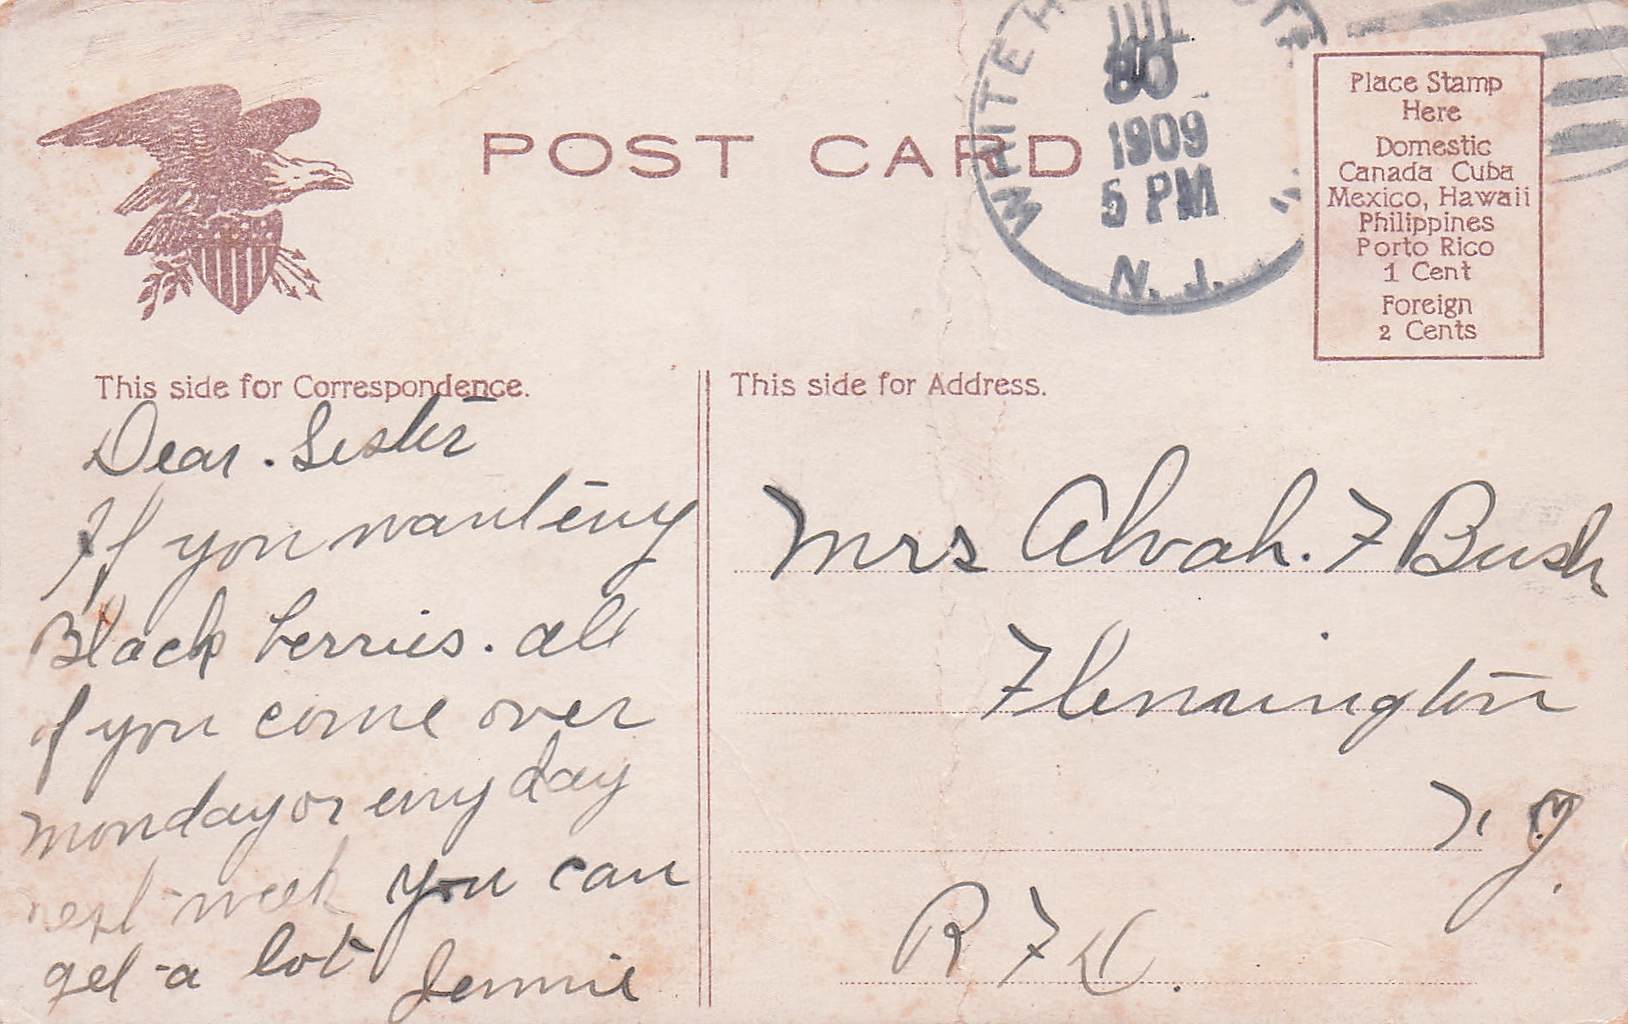 POST CARD
WHITE HO
1909
5 PM
N.J.
Place Stamp
Here
Domestic
Canada Cuba
Mexico, Hawaii
Philippines
Porto Rico
1 Cent
Foreign
2 Cents
This side for Correspondence.
Dear. Sister
If you want eny
Black berries. all
if you come over
monday or eny day
next week you can
get a lot Jennie
This side for Address.
Mrs Alvah. F Bush
Flemington
N. J.
R F D.